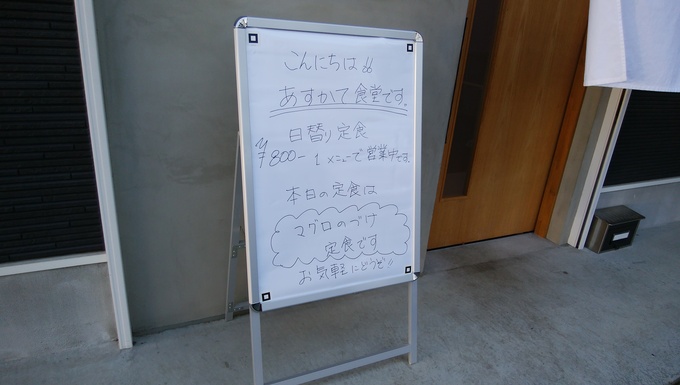 こんにちは!!
あすかて食堂です。
日替り定食
¥800- 1メニューで営業中です。
本日の定食は
マグロのづけ
定食です
お気軽にどうぞ!!